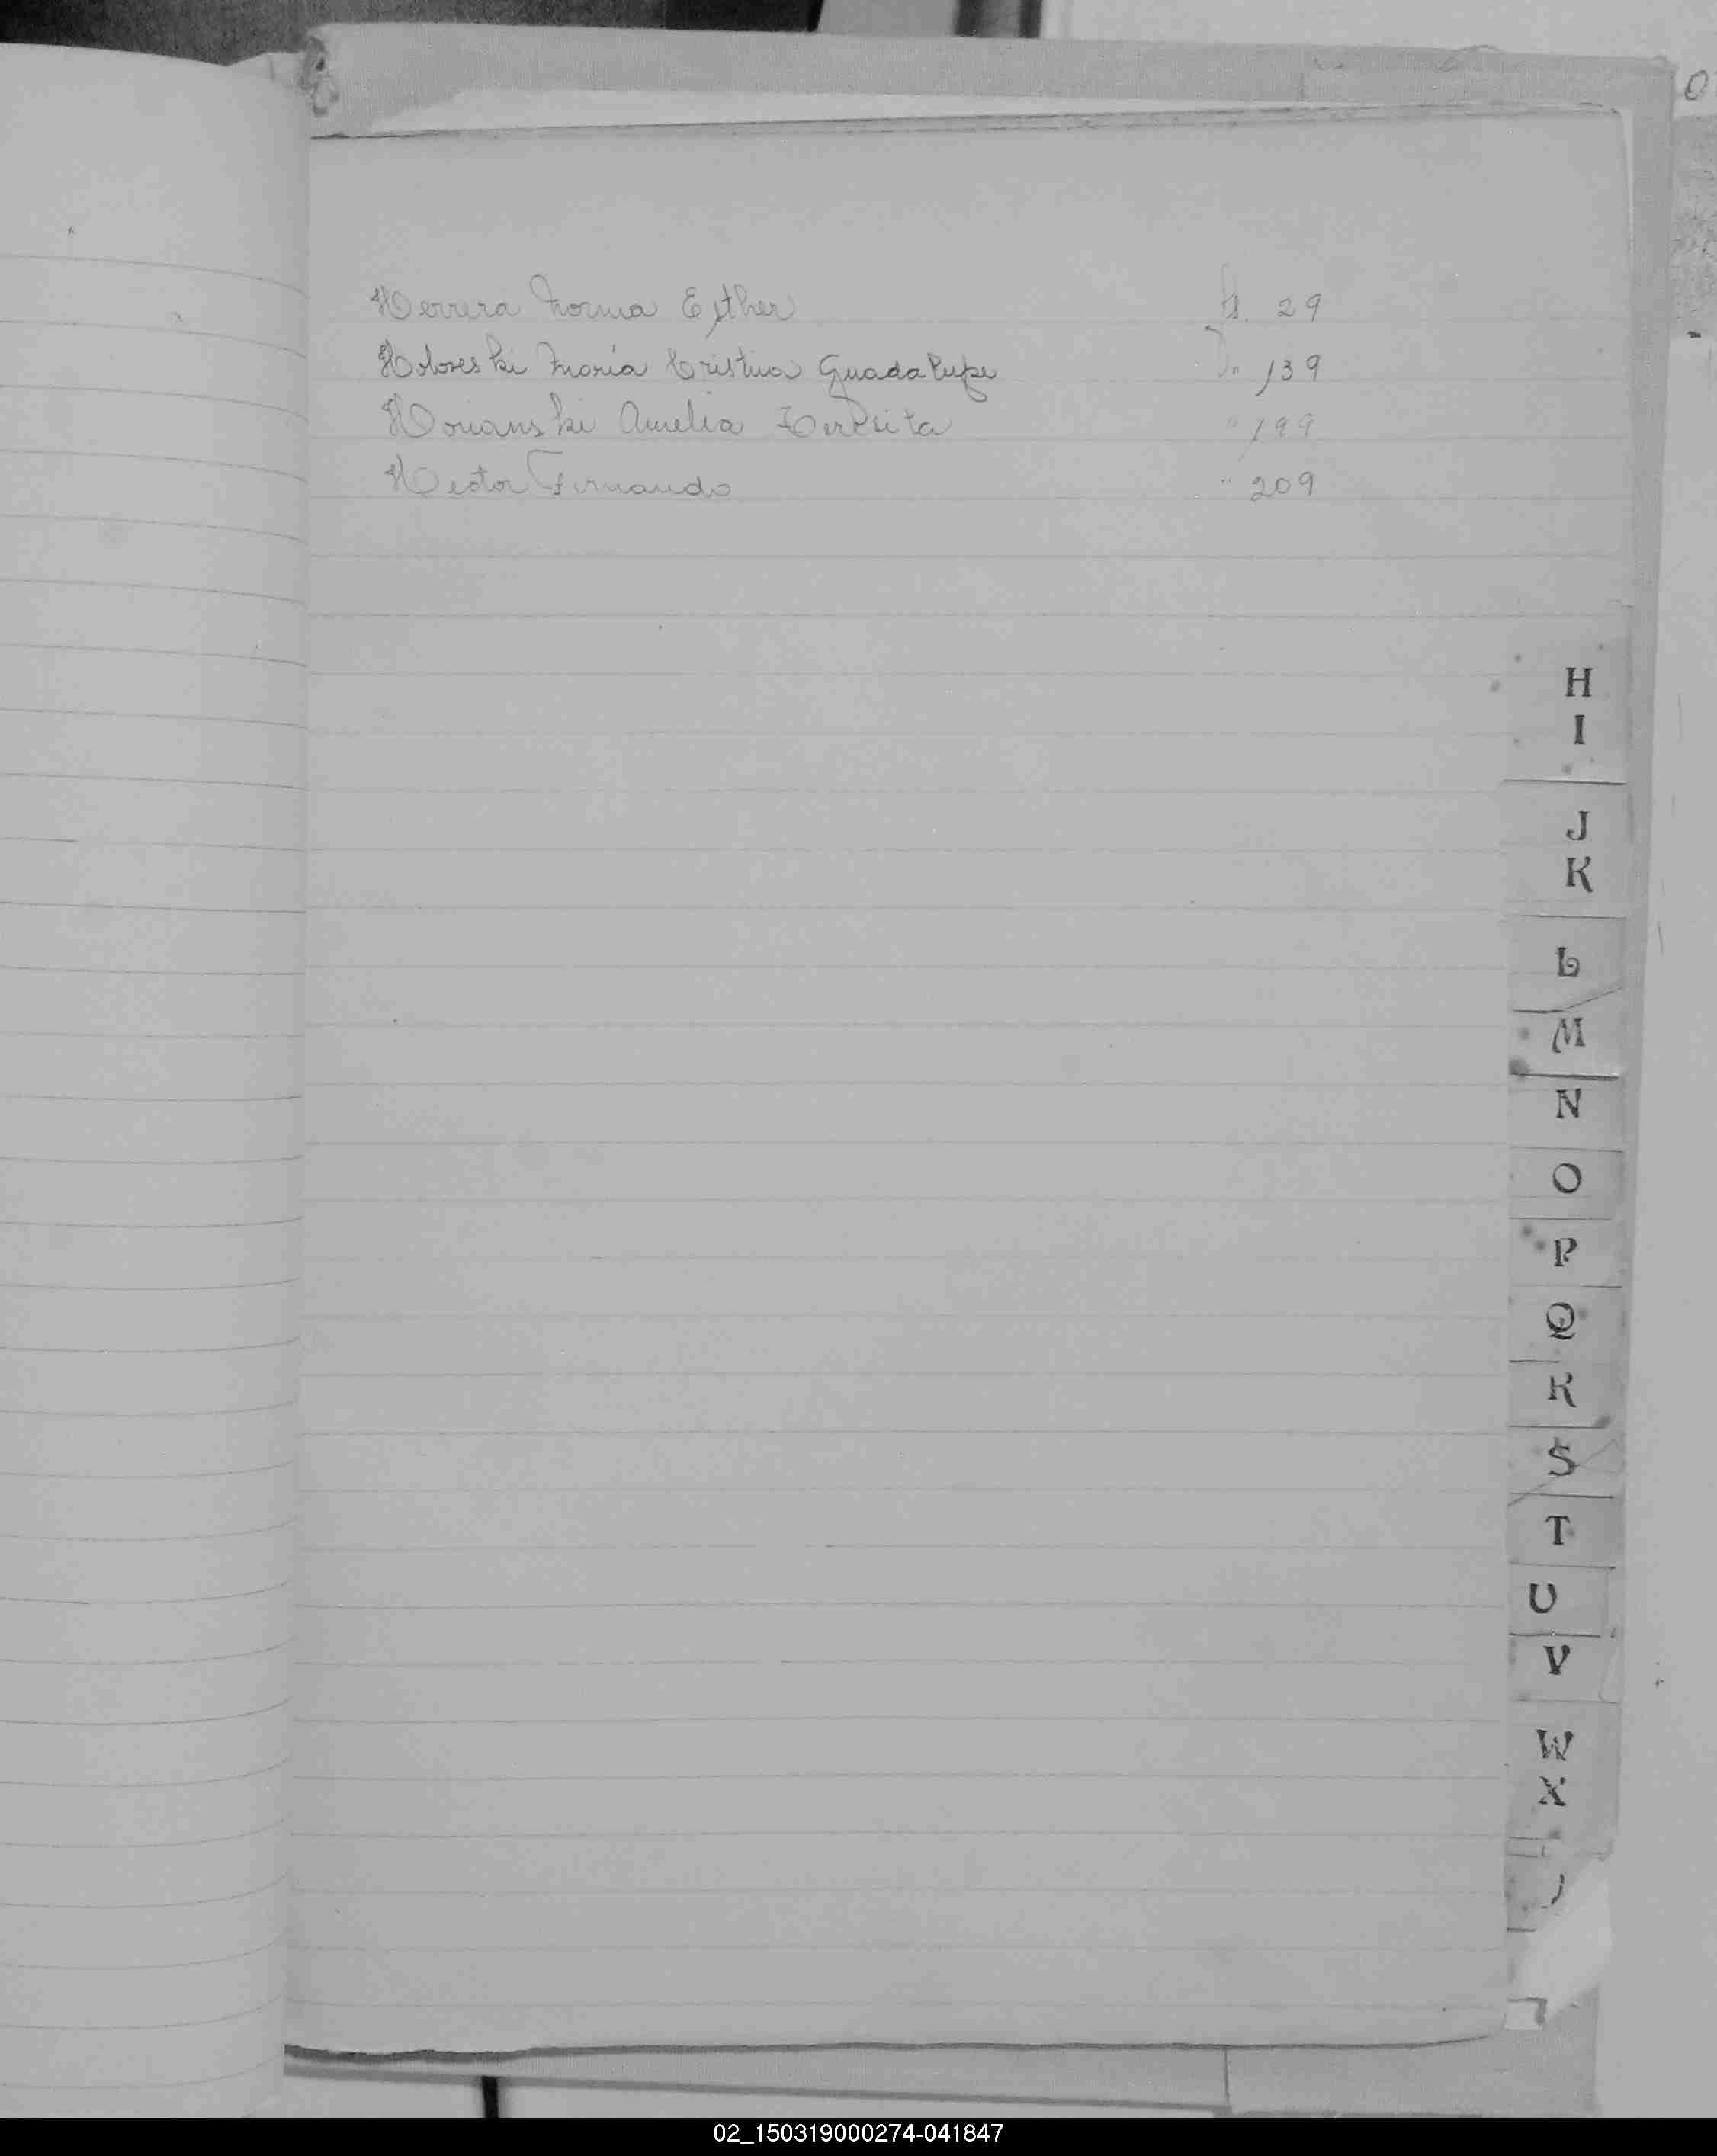 Herrera Norma Esther fs. 29
Holoveski María Cristina Guadalupe " 139
Houanski Amelia Teresita " 199
Hector Fernando " 209
H
I
J
K
L
M
N
O
P
Q
R
S
T
U
V
W
X
02_150319000274-041847